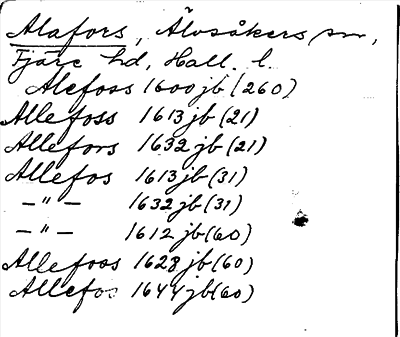 Alafors, Älvsåkers sn,
Fjäre hd, Hall. l.
Alefoss 1600 jb (260)
Allefoss 1613 jb (21)
Allefors 1632 jb (21)
Allefos 1613 jb (31)
— " — 1632 jb (31)
— " — 1612 jb (60)
Allefoos 1628 jb (60)
Allefos 1644 jb (60)